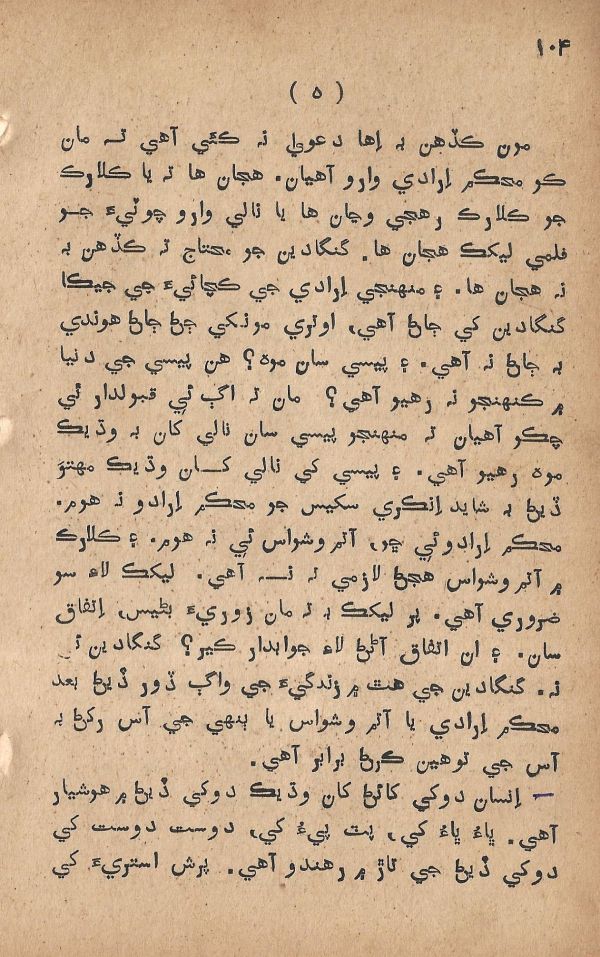 ۱۰۴
( ۵ )
مون ڪڏهن بہ اِها دعويٰ نہ ڪئي آهي تہ مان
ڪو محڪم اِرادي وارو آهيان. هجان ها تہ يا ڪلارڪ
جو ڪلارڪ رهجي وڃان ها يا نالي وارو چوٽيءَ جو
فلمي ليکڪ هجان ها. گنگادين جو محتاج تہ ڪڏهن بہ
نہ هجان ها. ۽ منهنجي اِرادي جي ڪچائيءَ جي جيڪا
گنگادين کي ڄاڻ آهي، اوتري مونکي ڄڻ ڄاڻ هوندي
بہ ڄاڻ نہ آهي. ۽ پيسي سان موهه؟ هن پيسي جي دنيا
۾ ڪنهنجو نہ رهيو آهي؟ مان تہ اڳ ئي قبولدار ٿي
چڪو آهيان تہ منهنجو پيسي سان نالي کان بہ وڌيڪ
موهه رهيو آهي. ۽ پيسي کي نالي کان وڌيڪ مهتوَ
ڏيڻ بہ شايد اِنڪري سکيس جو محڪم اِرادو نہ هوم.
محڪم اِرادو ئي ڇو، آتم وشواس ئي نہ هوم. ۽ ڪلارڪ
۾ آتم وشواس هجڻ لازمي تہ نہ آهي. ليکڪ لاءِ سو
ضروري آهي. پر ليکڪ بہ تہ مان زوريءَ بڻيس، اِتفاق
سان. ۽ ان اتفاق آڻڻ لاءِ جوابدار ڪير؟ گنگادين ئي
نہ. گنگادين جي هٿ ۾ زندگيءَ جي واڳ ڏور ڏيڻ بعد
محڪم اِرادي يا آتم وشواس يا ٻنهي جي آس رکڻ بہ
آس جي توهين ڪرڻ برابر آهي.
— اِنسان دوکي کائڻ کان وڌيڪ دوکي ڏيڻ ۾ هوشيار
آهي. ڀاءُ ڀاءُ کي، پٽ پيءُ کي، دوست دوست کي
دوکي ڏيڻ جي تاڙ ۾ رهندو آهي. پرش استريءَ کي